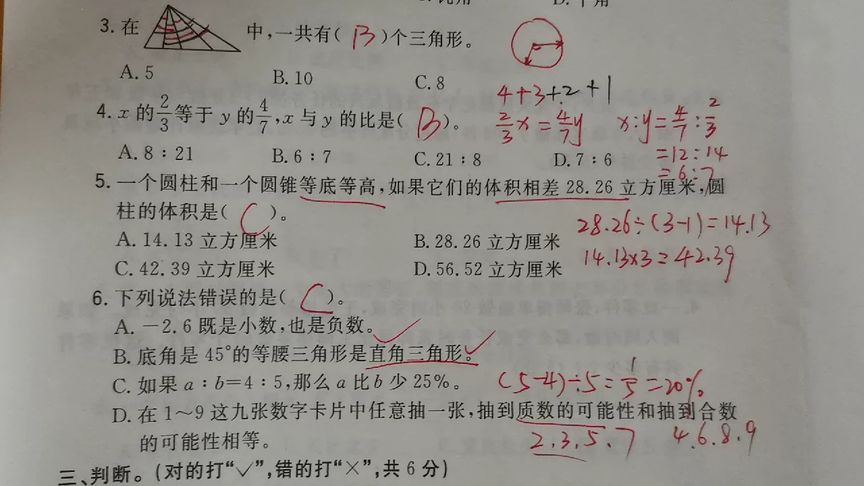 D. 十角
3. 在 中,一共有( B )个三角形。
A. 5 B. 10 C. 8
4+3+2+1
4. x 的2/3等于 y 的4/7,x 与 y 的比是( B )。 2/3x=4/7y x:y=4/7:2/3
=12:14
=6:7
A. 8∶21 B. 6∶7 C. 21∶8 D. 7∶6
5. 一个圆柱和一个圆锥等底等高,如果它们的体积相差 28.26 立方厘米,圆
柱的体积是( C )。 28.26÷(3-1)=14.13
A. 14.13 立方厘米 B. 28.26 立方厘米
14.13×3=42.39
C. 42.39 立方厘米 D. 56.52 立方厘米
6. 下列说法错误的是( C )。
A. －2.6 既是小数,也是负数。✓
B. 底角是 45°的等腰三角形是直角三角形。✓
C. 如果 a∶b=4∶5,那么 a 比 b 少 25%。 (5-4)÷5=1/5=20%
D. 在 1～9 这九张数字卡片中任意抽一张,抽到质数的可能性和抽到合数
的可能性相等。 2.3.5.7 4.6.8.9
三、判断。(对的打“✓”,错的打“×”,共 6 分)